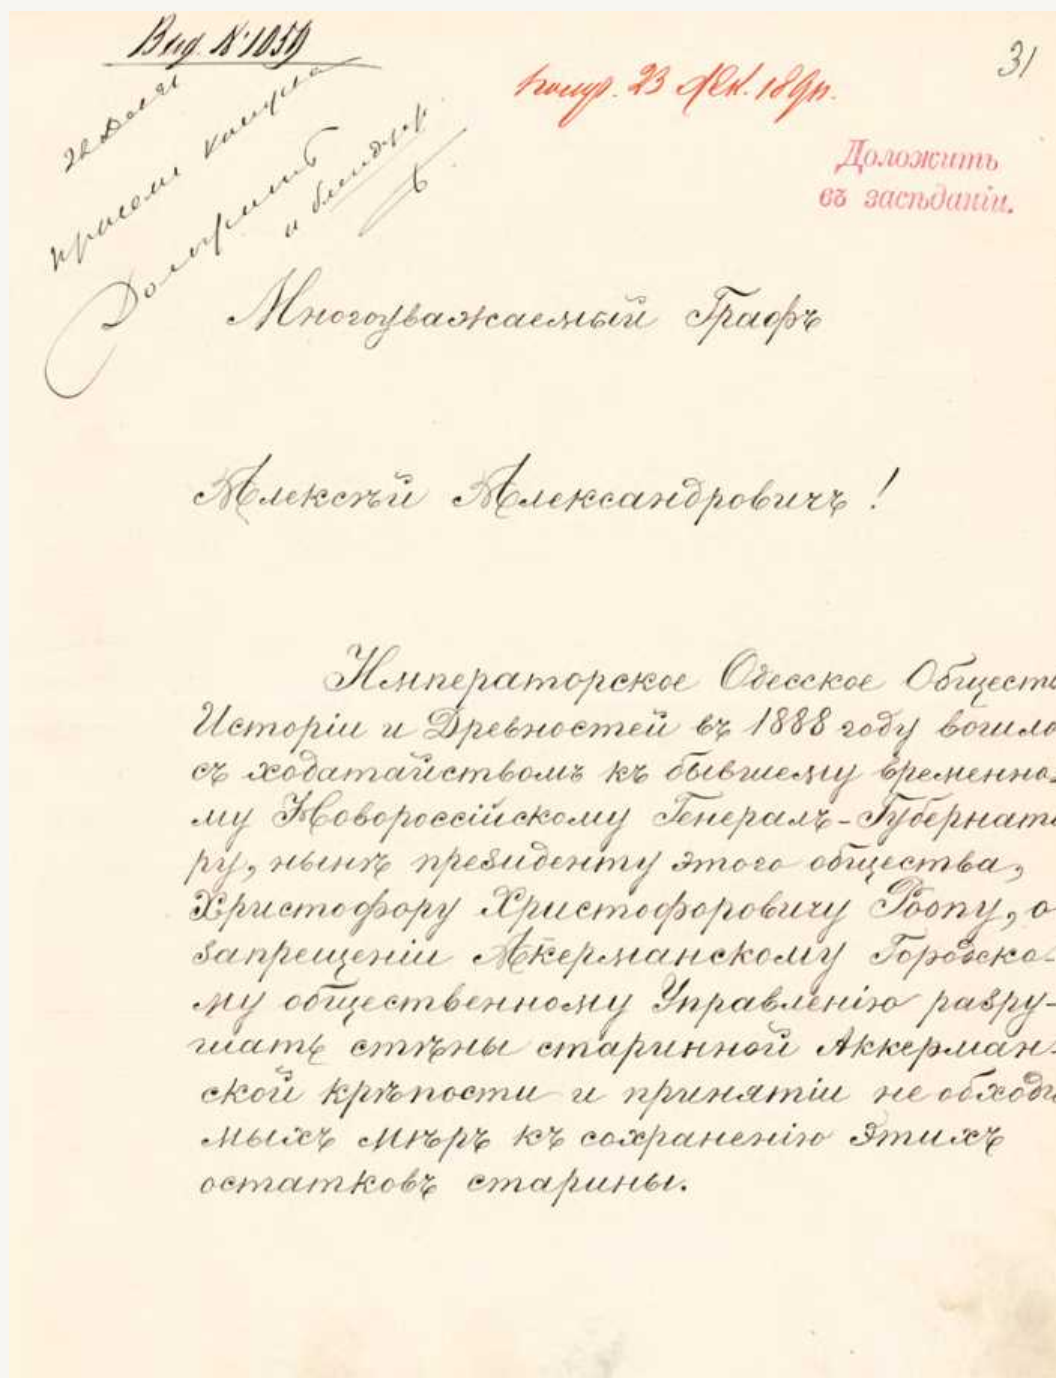 Вид. № 1059
31
Получ. 23 Дек. 189
Доложить
въ засѣданіи.
Многоуважаемый Графъ
Алексѣй Александровичъ!
Императорское Одесское Обществ
Исторіи и Древностей въ 1888 году вошло
съ ходатайствомъ къ бывшему временно-
му Новороссійскому Генералъ-Губернато
ру, нынѣ президенту этого общества,
Христофору Христофоровичу Роопу, о
запрещеніи Аккерманскому Городско-
му общественному Управленію разру-
шать стѣны старинной Аккерман-
ской крѣпости и принятіи не обходи
мыхъ мѣръ къ сохраненію этихъ
остатковъ старины.